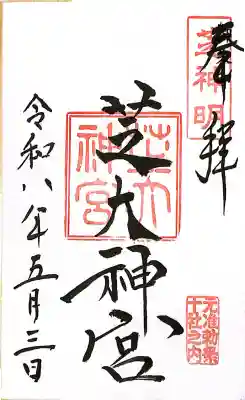 奉拝
芝神明
芝大神宮
芝大神宮
令和八年五月三日
元准勅祭
十社之内